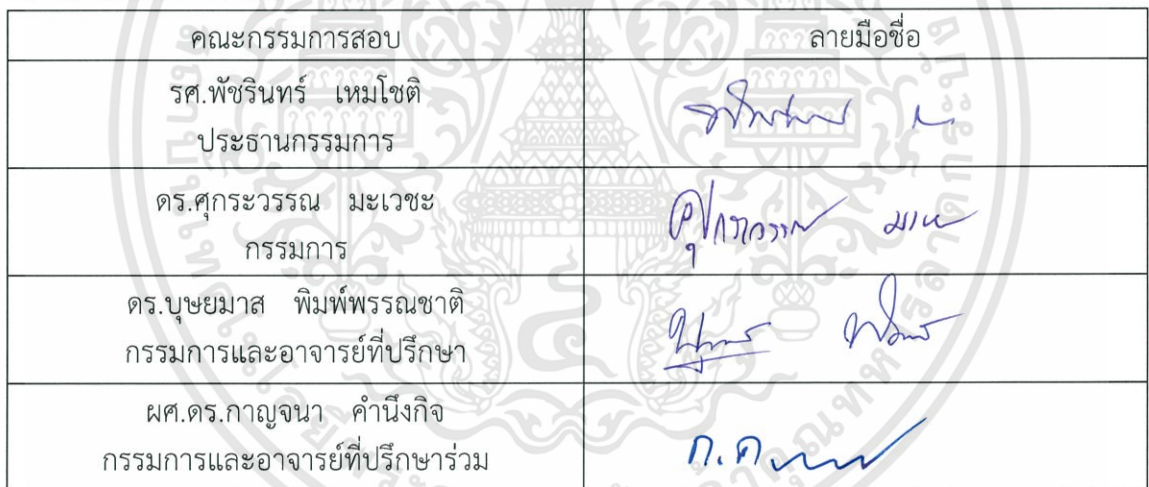 คณะกรรมการสอบ ลายมือชื่อ
รศ.พัชรินทร์ เหมโชติ
ประธานกรรมการ
ดร.ศุกระวรรณ มะเวชะ
กรรมการ
ดร.บุษยมาส พิมพ์พรรณชาติ
กรรมการและอาจารย์ที่ปรึกษา
ผศ.ดร.กาญจนา คำนึงกิจ
กรรมการและอาจารย์ที่ปรึกษาร่วม